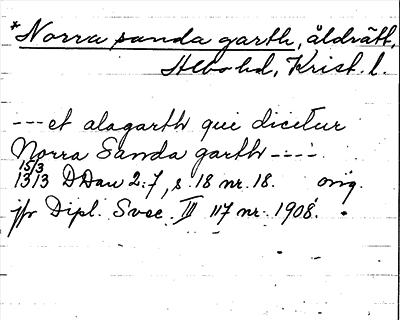 *Norra sanda garth, åldrätt,
Albo hd, Krist. l.
--- et alagarth que dicitur
Norra Sanda garth ----
15/3
1313 DDan 2:7, s. 18 nr. 18. orig.
jfr Dipl. Svec. III 117 nr. 1908.